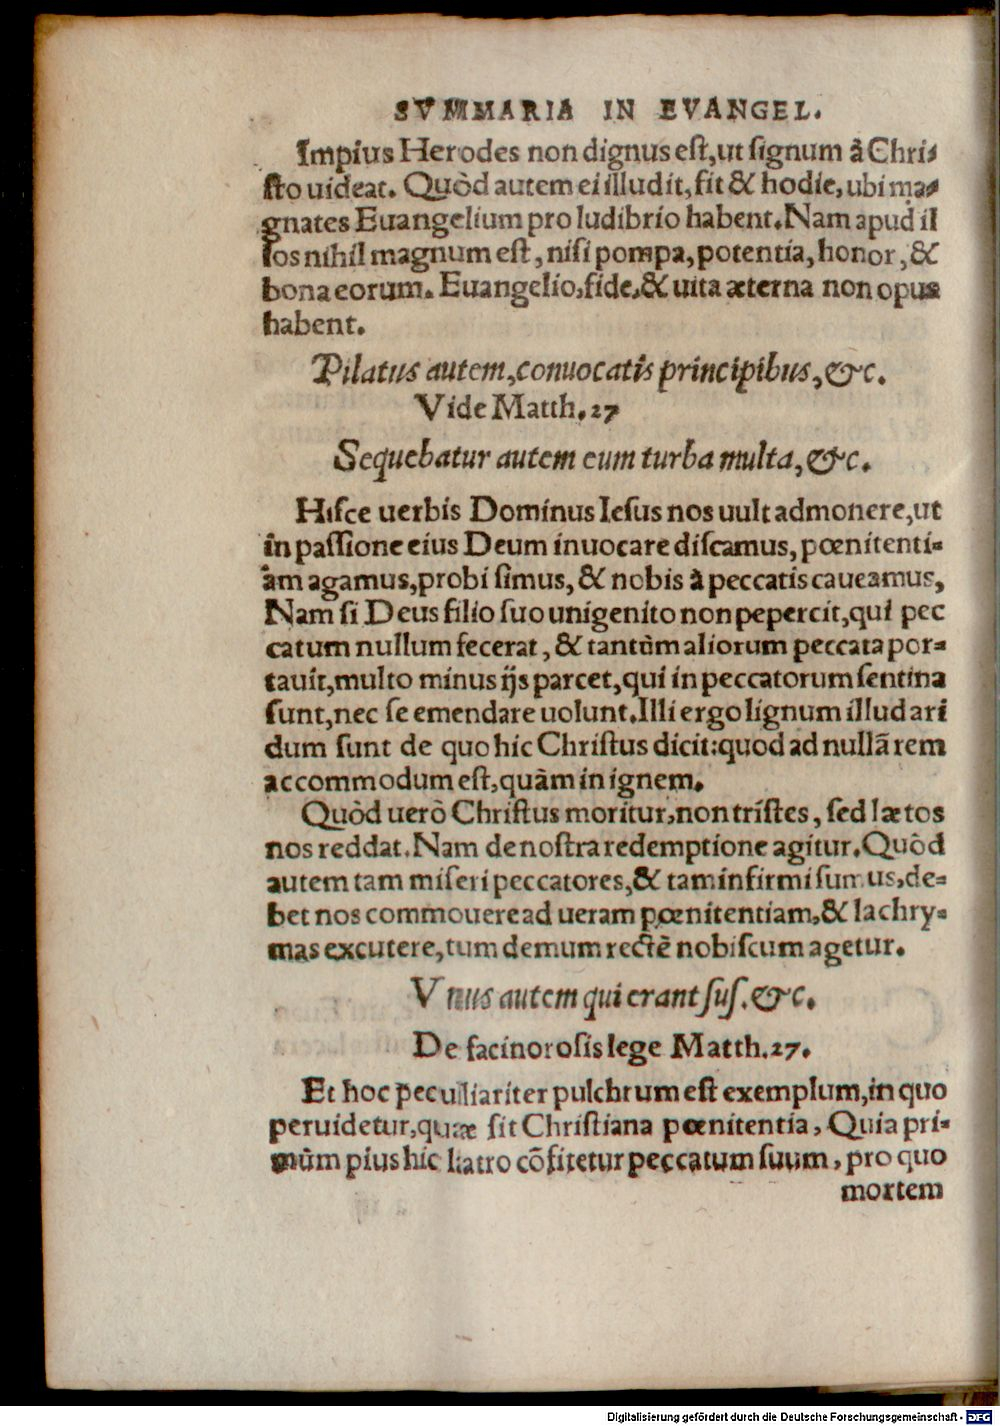 SVMMARIA IN EVANGEL.
Impius Herodes non dignus est, ut signum à Chri-
sto uideat. Quòd autem ei illudit, fit & hodie, ubi ma-
gnates Euangelium pro ludibrio habent. Nam apud il
los nihil magnum est, nisi pompa, potentia, honor, &
bona eorum. Euangelio, fide, & uita æterna non opus
habent.
Pilatus autem, conuocatis principibus, &c.
Vide Matth. 27
Sequebatur autem eum turba multa, &c.
Hisce uerbis Dominus Iesus nos uult admonere, ut
in passione eius Deum inuocare discamus, pœnitenti-
am agamus, probi simus, & nobis à peccatis caueamus,
Nam si Deus filio suo unigenito non pepercit, qui pec
catum nullum fecerat, & tantùm aliorum peccata por-
tauit, multo minus ijs parcet, qui in peccatorum sentina
sunt, nec se emendare uolunt. Illi ergo lignum illud ari
dum sunt de quo hic Christus dicit: quod ad nullā rem
accommodum est, quàm in ignem.
Quòd uerò Christus moritur, non tristes, sed lætos
nos reddat. Nam de nostra redemptione agitur. Quòd
autem tam miseri peccatores, & tam infirmi sumus, de-
bet nos commouere ad ueram pœnitentiam, & lachry-
mas excutere, tum demum rectè nobiscum agetur.
Vnus autem qui erant sus. &c.
De facinorosis lege Matth. 27.
Et hoc peculiariter pulchrum est exemplum, in quo
peruidetur, quæ sit Christiana pœnitentia, Quia pri-
mùm pius hic latro cōfitetur peccatum suum, pro quo
mortem
Digitalisierung gefördert durch die Deutsche Forschungsgemeinschaft - DFG